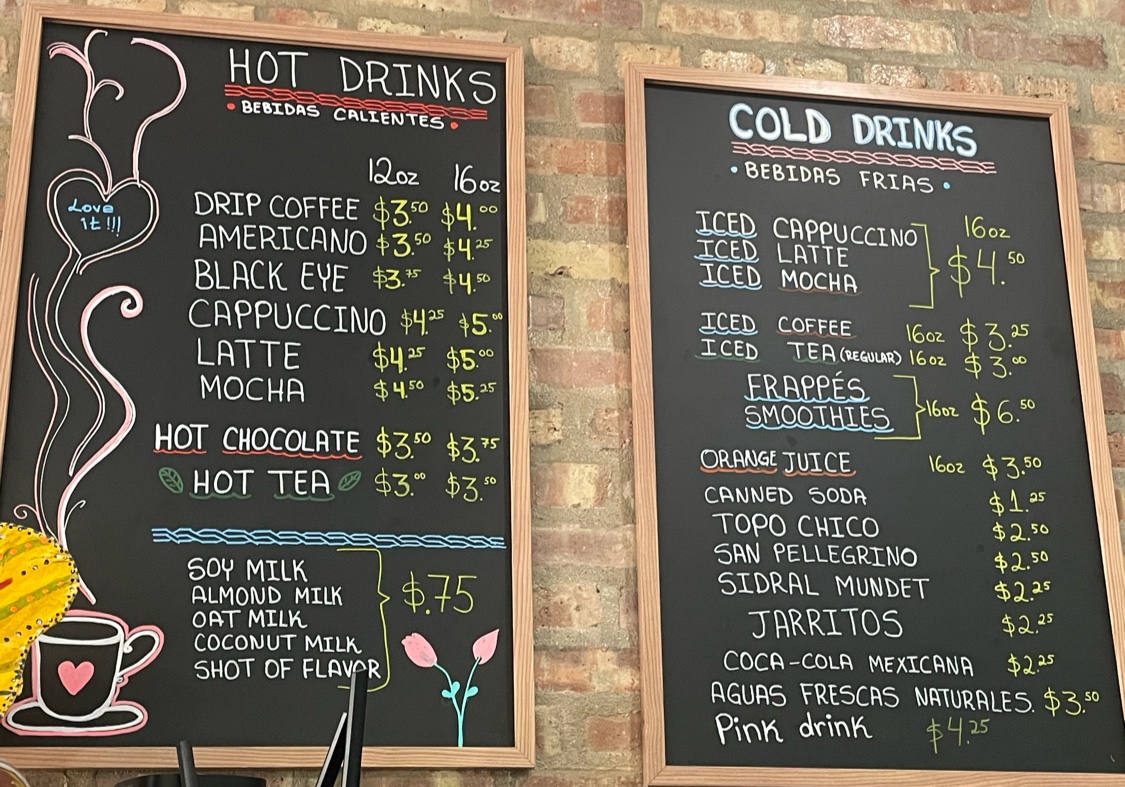 HOT DRINKS
• BEBIDAS CALIENTES •
12oz 16oz
DRIP COFFEE $3.50 $4.00
AMERICANO $3.50 $4.25
BLACK EYE $3.75 $4.50
CAPPUCCINO $4.25 $5.00
LATTE $4.25 $5.00
MOCHA $4.50 $5.25
HOT CHOCOLATE $3.50 $3.75
HOT TEA $3.00 $3.50
SOY MILK
ALMOND MILK
OAT MILK $.75
COCONUT MILK
SHOT OF FLAVOR
Love
it!!!
COLD DRINKS
• BEBIDAS FRIAS •
ICED CAPPUCCINO 16oz
ICED LATTE $4.50
ICED MOCHA
ICED COFFEE 16oz $3.25
ICED TEA (REGULAR) 16oz $3.00
FRAPPÉS
SMOOTHIES 16oz $6.50
ORANGE JUICE 16oz $3.50
CANNED SODA $1.25
TOPO CHICO $2.50
SAN PELLEGRINO $2.50
SIDRAL MUNDET $2.25
JARRITOS $2.25
COCA-COLA MEXICANA $2.25
AGUAS FRESCAS NATURALES. $3.50
Pink drink $4.25